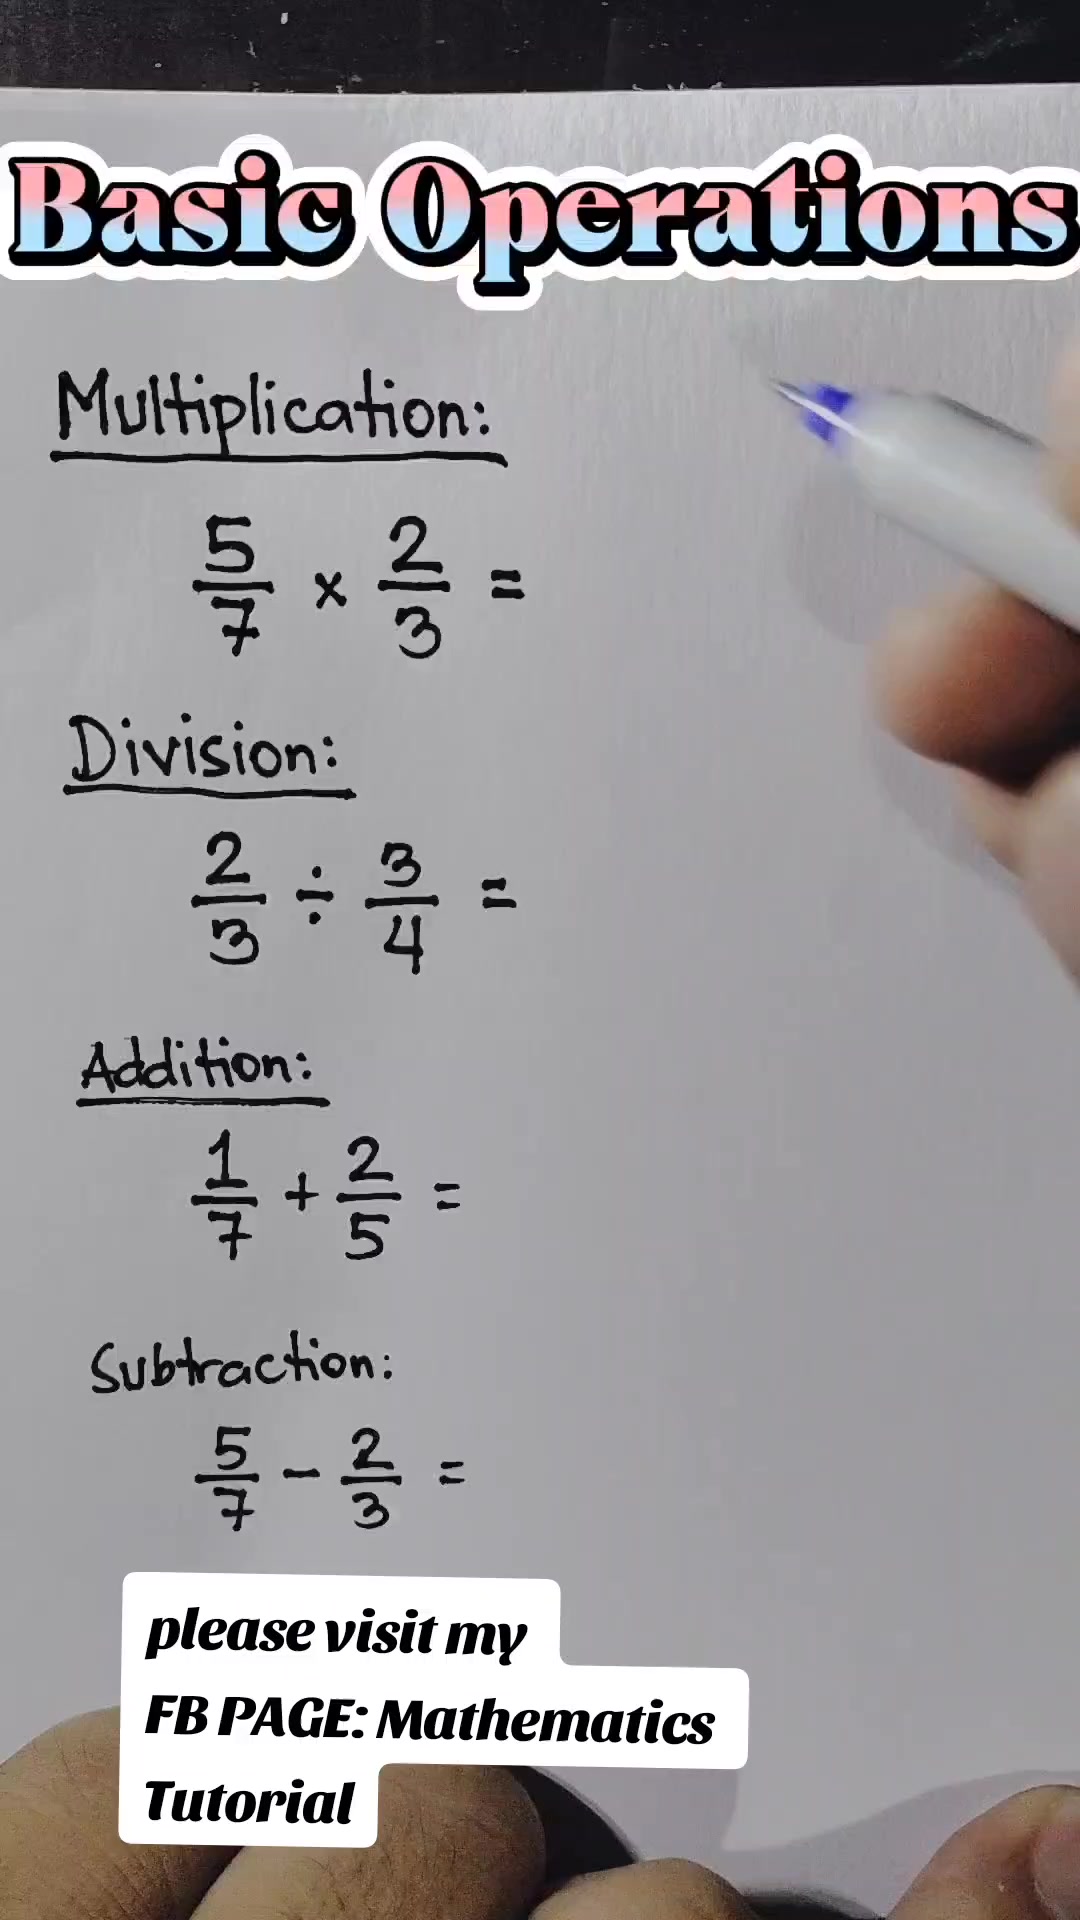 Basic Operations
Multiplication:
5/7 × 2/3 =
Division:
2/3 ÷ 3/4 =
Addition:
1/7 + 2/5 =
Subtraction:
5/7 - 2/3 =
please visit my
FB PAGE: Mathematics
Tutorial